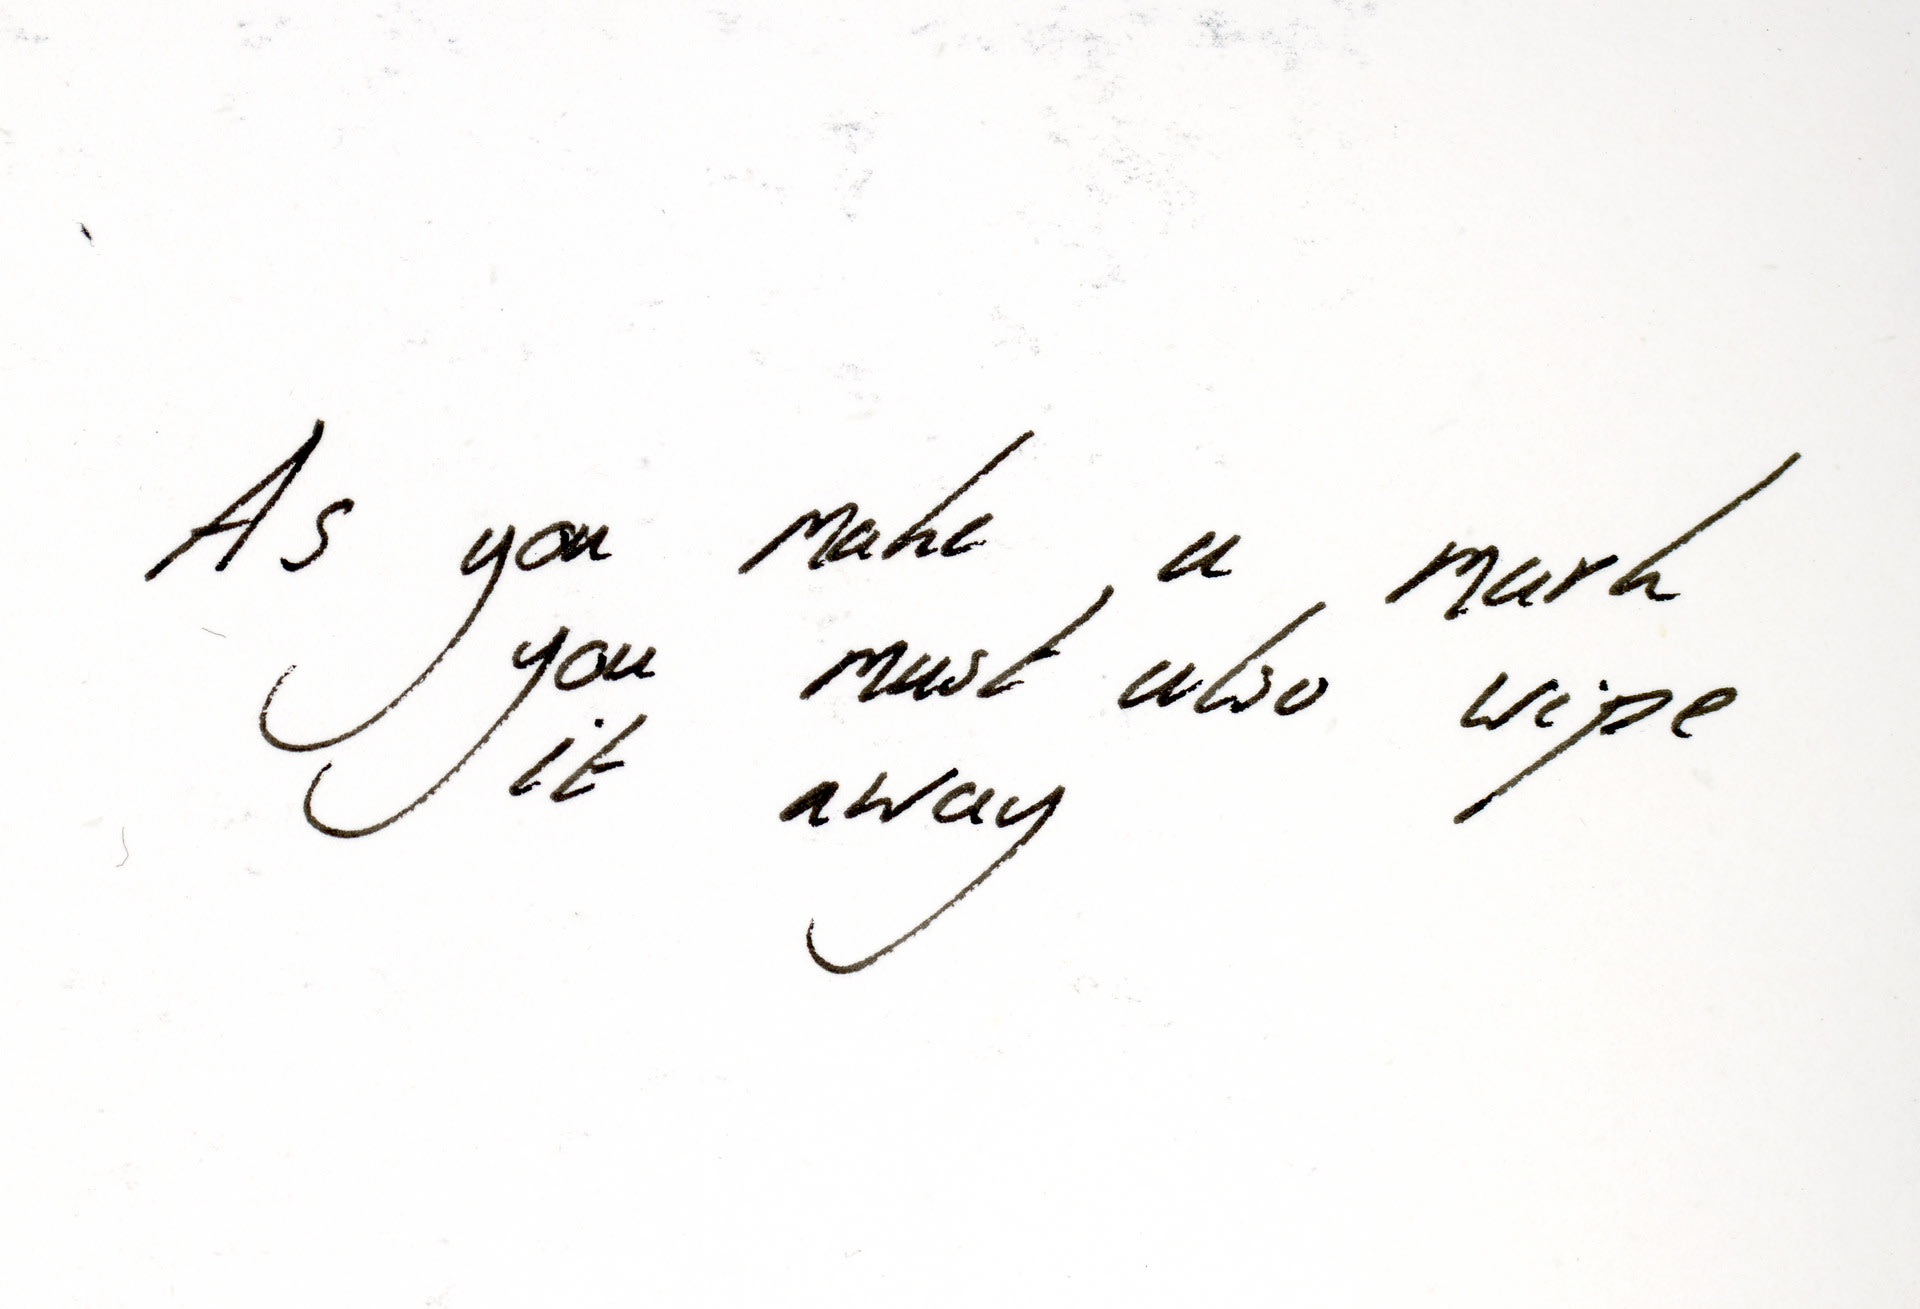 As you make a mark
you must also wipe
it away